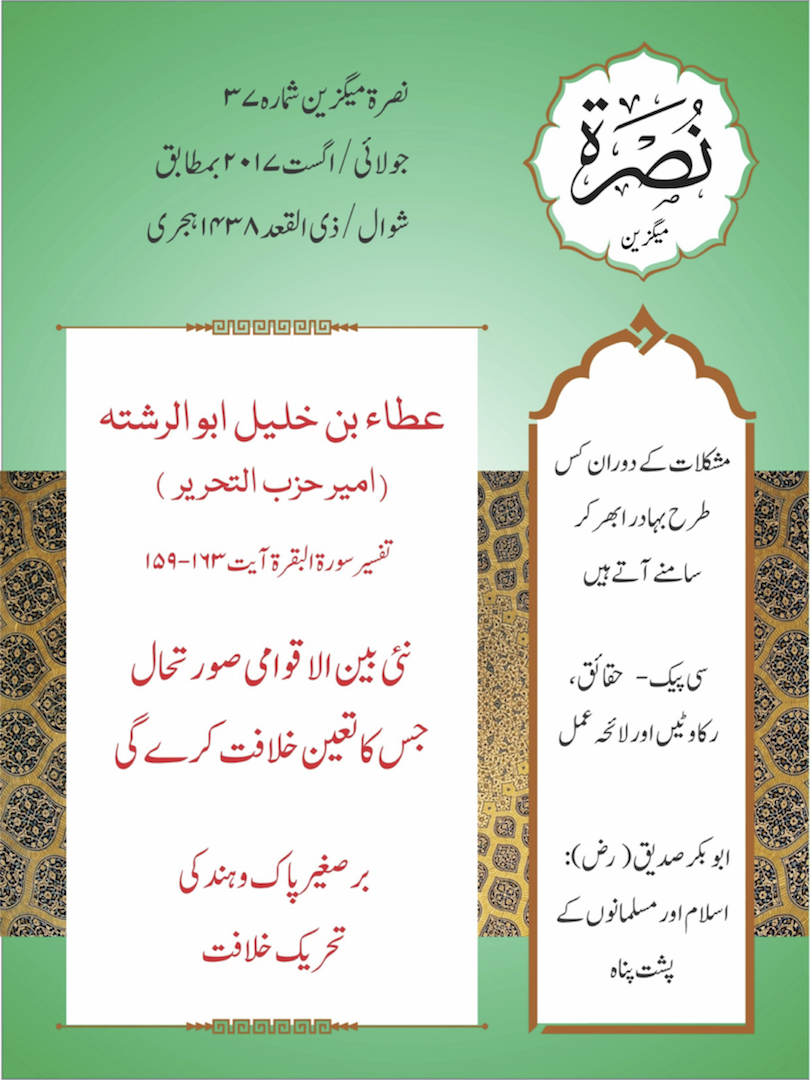 نُصرۃ
میگزین
نصرۃ میگزین شمارہ ۳۷
جولائی / اگست ۲۰۱۷ بمطابق
شوال / ذی القعد ۱۴۳۸ ہجری
مشکلات کے دوران کس
طرح بہادر ابھر کر
سامنے آتے ہیں
سی پیک - حقائق،
رکاوٹیں اور لائحہ عمل
ابو بکر صدیق (رض):
اسلام اور مسلمانوں کے
پشت پناہ
عطاء بن خلیل ابو الرشتہ
(امیر حزب التحریر)
تفسیر سورۃ البقرۃ آیت ۱۶۳-۱۵۹
نئی بین الاقوامی صورتحال
جس کا تعین خلافت کرے گی
بر صغیر پاک و ہند کی
تحریک خلافت